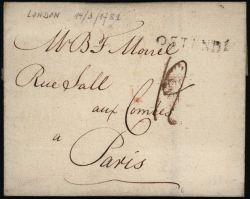 LONDON 14/3/1781
OSTENDE
Mr B F Morel
Rue Sall
aux Comtes
12
a
Paris